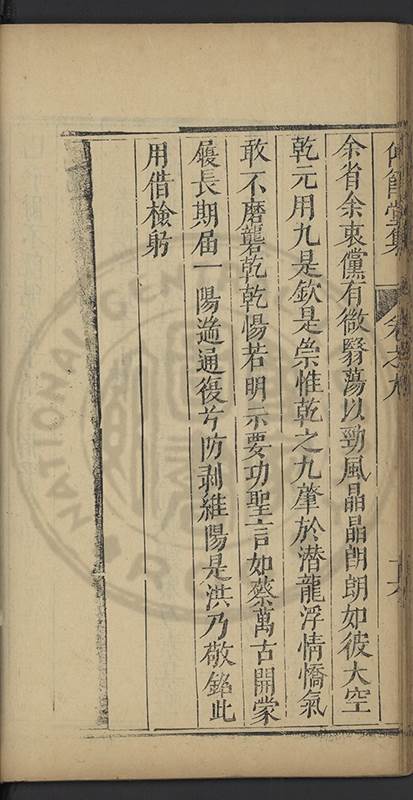 余省余衷儻有微翳蕩以勁風晶晶朗朗如彼大空
乾元用九是欽是崇惟乾之九肇於潜龍浮情憍氣
敢不磨礲乾乾惕若明示要功聖言如蔡萬古開蒙
履長期届一陽遊通復于防剥維陽是洪乃敬銘此
用借檢躬